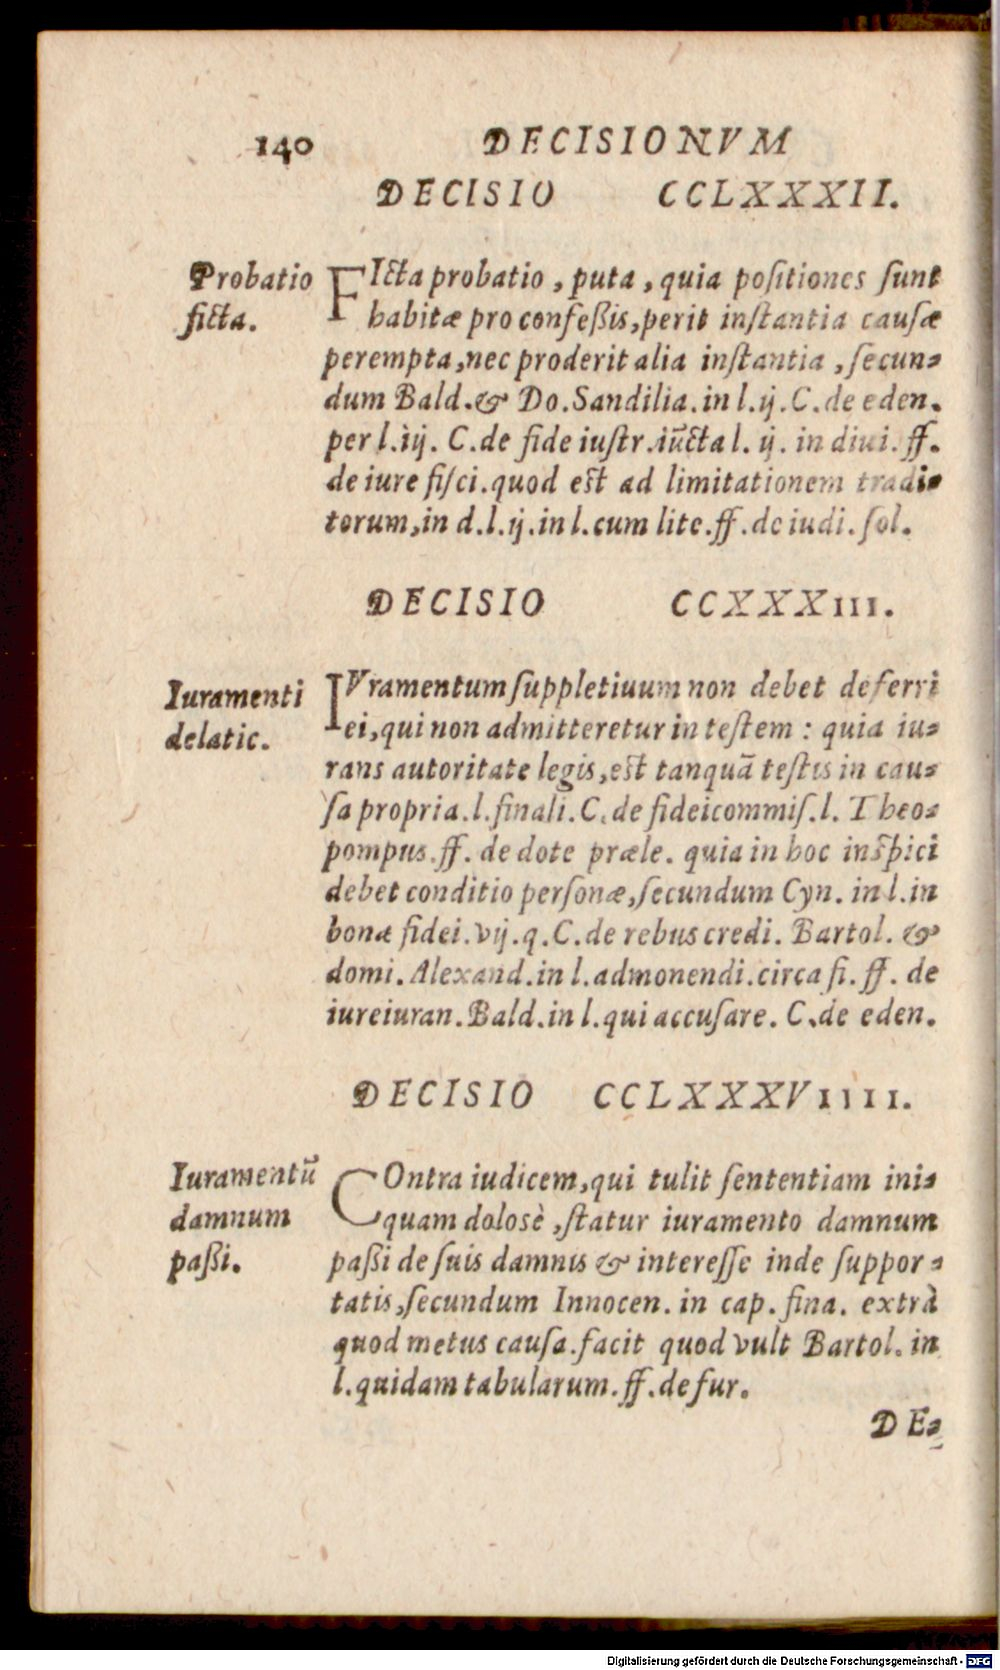 140 DECISIONVM
DECISIO CCLXXXII.
Probatio
ficta.
FIcta probatio, puta, quia poſitiones ſunt
habitæ pro confeßis, perit inſtantia cauſæ
perempta, nec proderit alia inſtantia, ſecun-
dum Bald. & Do. Sandilia. in l. ij. C. de eden.
per l. iij. C. de fide iuſtr. iūcta l. ij. in diui. ff.
de iure fiſci. quod eſt ad limitationem tradi-
torum, in d. l. ij. in l. cum lite. ff. de iudi. ſol.
DECISIO CCXXXIII.
Iuramenti
delatic.
IVramentum ſuppletiuum non debet deferri
ei, qui non admitteretur in teſtem : quia iu-
rans autoritate legis, eſt tanquā teſtis in cau-
ſa propria. l. finali. C. de fideicommiſ. l. Theo-
pompus. ff. de dote præle. quia in hoc inſpici
debet conditio perſonæ, ſecundum Cyn. in l. in
bonæ fidei. vij. q. C. de rebus credi. Bartol. &
domi. Alexand. in l. admonendi. circa fi. ff. de
iureiuran. Bald. in l. qui accuſare. C. de eden.
DECISIO CCLXXXVIIII.
Iuramentū
damnum
paßi.
COntra iudicem, qui tulit ſententiam ini-
quam dolosè, ſtatur iuramento damnum
paßi de ſuis damnis & intereſſe inde ſuppor-
tatis, ſecundum Innocen. in cap. fina. extrà
quod metus cauſa. facit quod vult Bartol. in
l. quidam tabularum. ff. de fur.
DE-
Digitalisierung gefördert durch die Deutsche Forschungsgemeinschaft - DFG